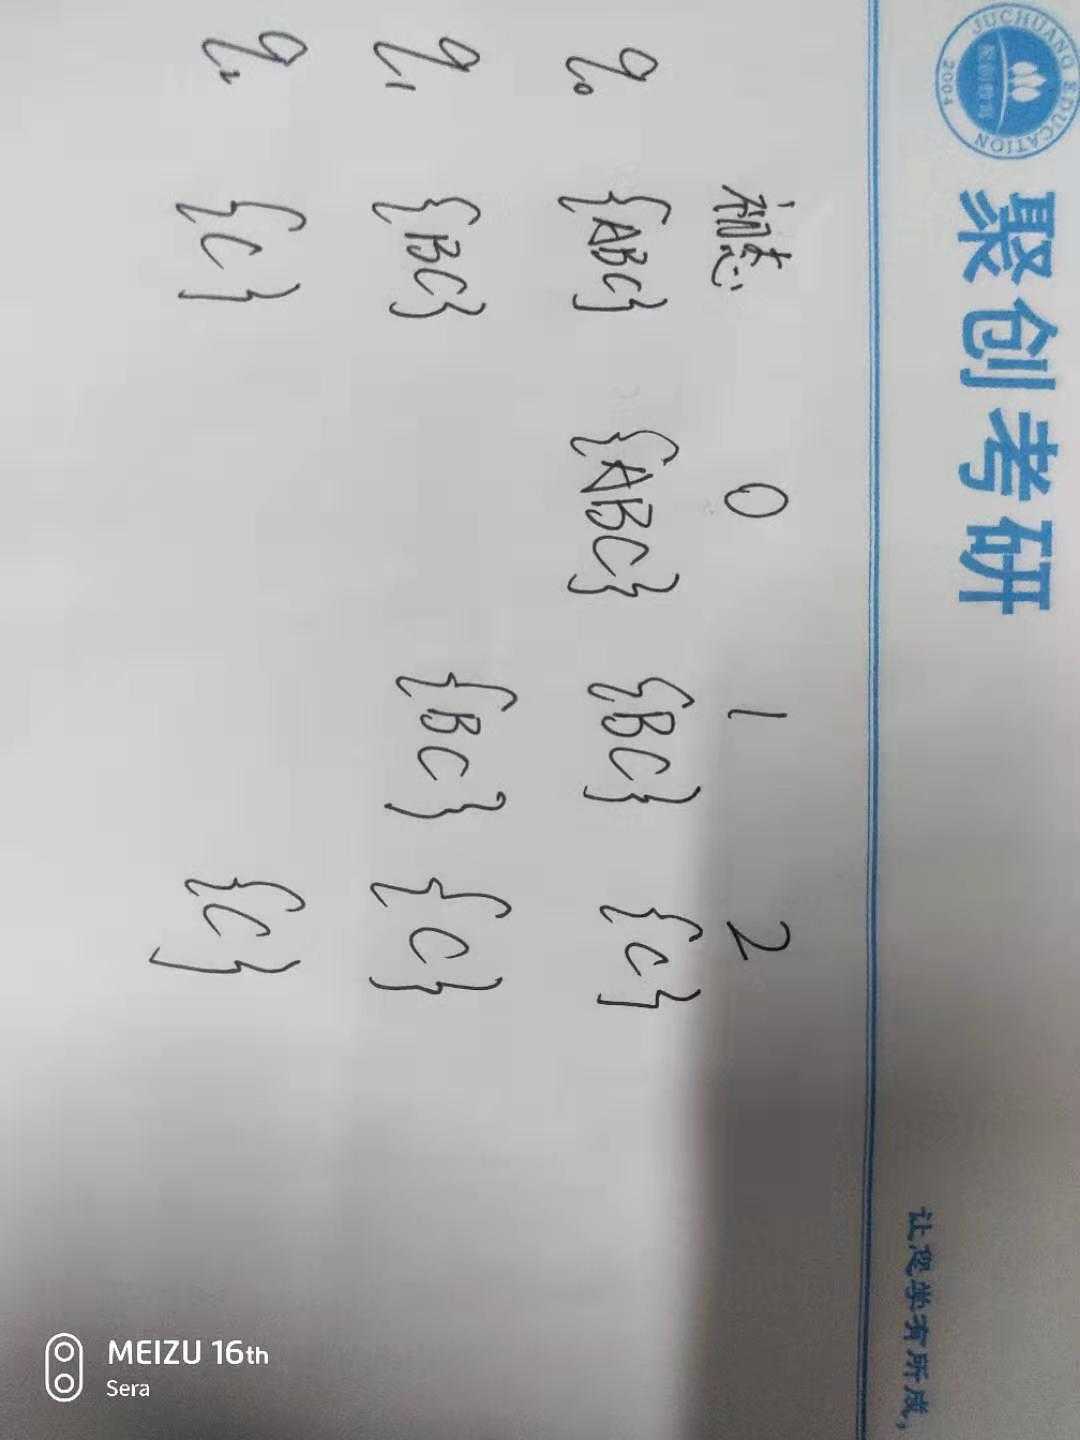 JUCHUANG EDUCATION
2004
聚创考研
让您学有所成，
初态 0 1 2
q₀ {ABC} {ABC} {BC} {C}
q₁ {BC} {BC} {C}
q₂ {C} {C}
MEIZU 16th
Sera